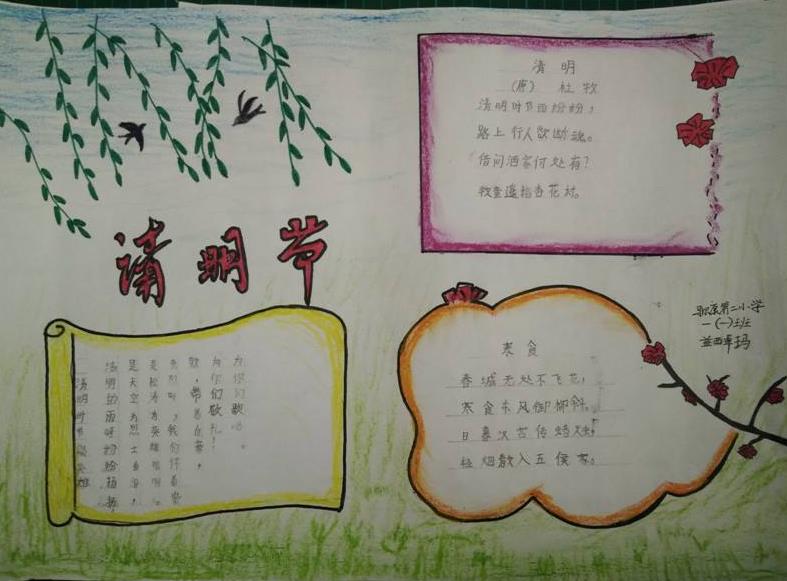 清明节
清明
(唐) 杜牧
清明时节雨纷纷，
路上行人欲断魂。
借问酒家何处有？
牧童遥指杏花村。
清明时节英雄
清明的雨呀纷纷扬扬，
是天空为烈士垂泪，
是松涛为英雄唱。
先烈呀，我们怀着崇
敬，带着自豪，
为你们敬礼！
为你们歌唱。
寒食
春城无处不飞花，
寒食东风御柳斜。
日暮汉宫传蜡烛，
轻烟散入五侯家。
第二小学
一(一)班
益西卓玛